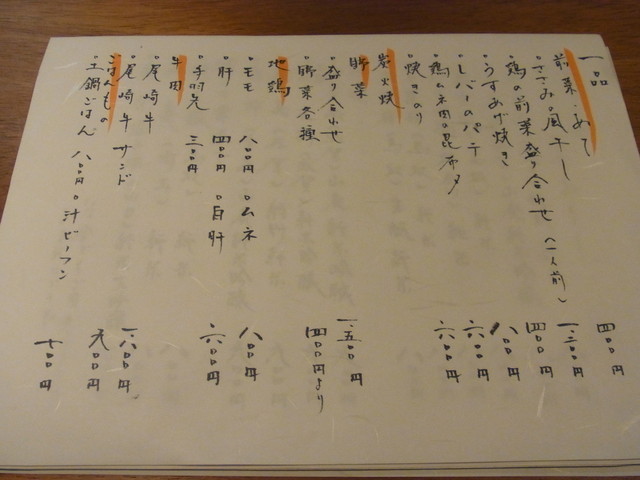 一品
前菜・あて
。ささみの風干し 四〇〇円
。鶏の前菜盛り合わせ（一人前） 一、二〇〇円
。うすあげ焼き 四〇〇円
。レバーのパテ 八〇〇円
。鶏ムネ肉の昆布〆 六〇〇円
。焼きのり 六〇〇円
炭火焼
野菜
。盛り合わせ 一、五〇〇円
。野菜各種 四〇〇円より
地鶏
。モモ 八〇〇円 。ムネ 八〇〇円
。肝 四〇〇円 。白肝 六〇〇円
。手羽先 三〇〇円
牛肉
。尾崎牛 一、八〇〇円
。尾崎牛サンド 九〇〇円
ごはんもの
。土鍋ごはん 八〇〇円 。汁ビーフン 七〇〇円